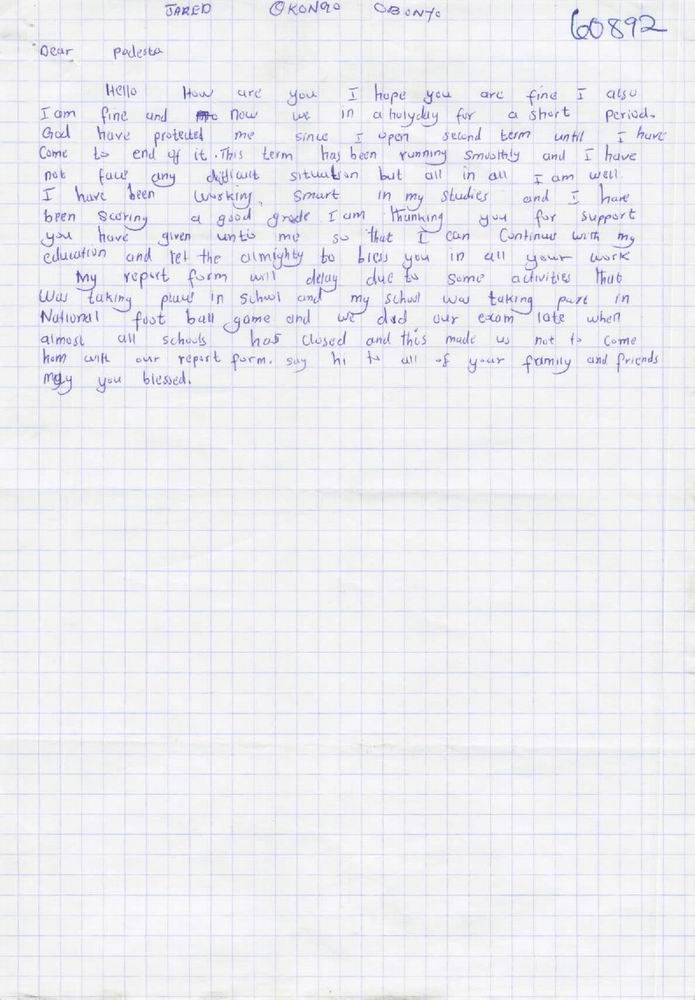 JARED OKONGO OBONYO
60892
Dear Padesta
Hello How are you I hope you are fine I also
I am fine and now we in a holyday for a short period.
God have protected me since I open second term until I have
Come to end of it. This term has been running smoothly and I have
not face any difficult situation but all in all I am well.
I have been working smart in my studies and I have
been scoring a good grade I am thanking you for support
you have given unto me so that I can Continue with my
education and let the almighty to bless you in all your work
My report form will delay due to some activities that
Was taking place in school and my school was taking part in
National foot ball game and we did our exam late when
almost all schools has closed and this made us not to come
hom with our report form. say hi to all of your family and friends
may you blessed.